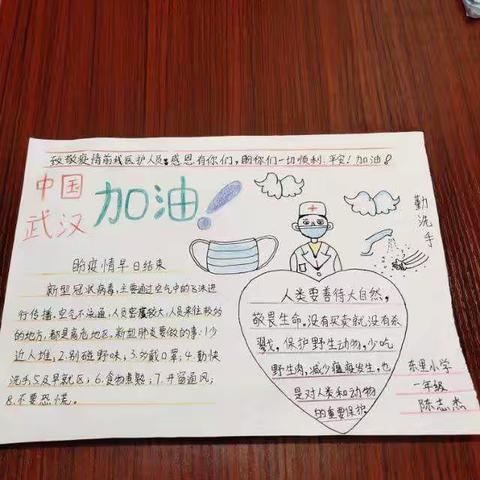 致敬疫情前线医护人员:感恩有你们,盼你们一切顺利、平安!加油!
中国
武汉
加油!
勤洗手
盼疫情早日结束
新型冠状病毒,主要通过空气中的飞沫进
行传播,空气不流通,人员密度较大,人员来往较的
的地方,都是高危地区。新型肺炎要做的事:1.少
近人堆;2.别碰野味;3.多戴口罩;4.勤快
洗手;5.及早就医;6.食物煮熟;7.开窗通风;
8.不要恐慌。
人类要善待大自然,
敬畏生命。没有买卖就没有杀
戮,保护野生动物,少吃
野生肉,减少瘟疫发生,也
是对人类和动物
的重要保护
东里小学
一年级
陈志杰